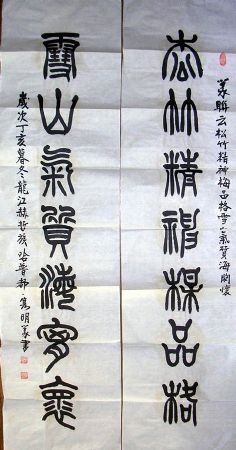 篆聯云松竹精神梅品格雪山氣質海胸懷
松竹精神梅品格
雪山氣質海胸懷
歲次丁亥暮冬龍江赫哲族哈普都·雋明篆書